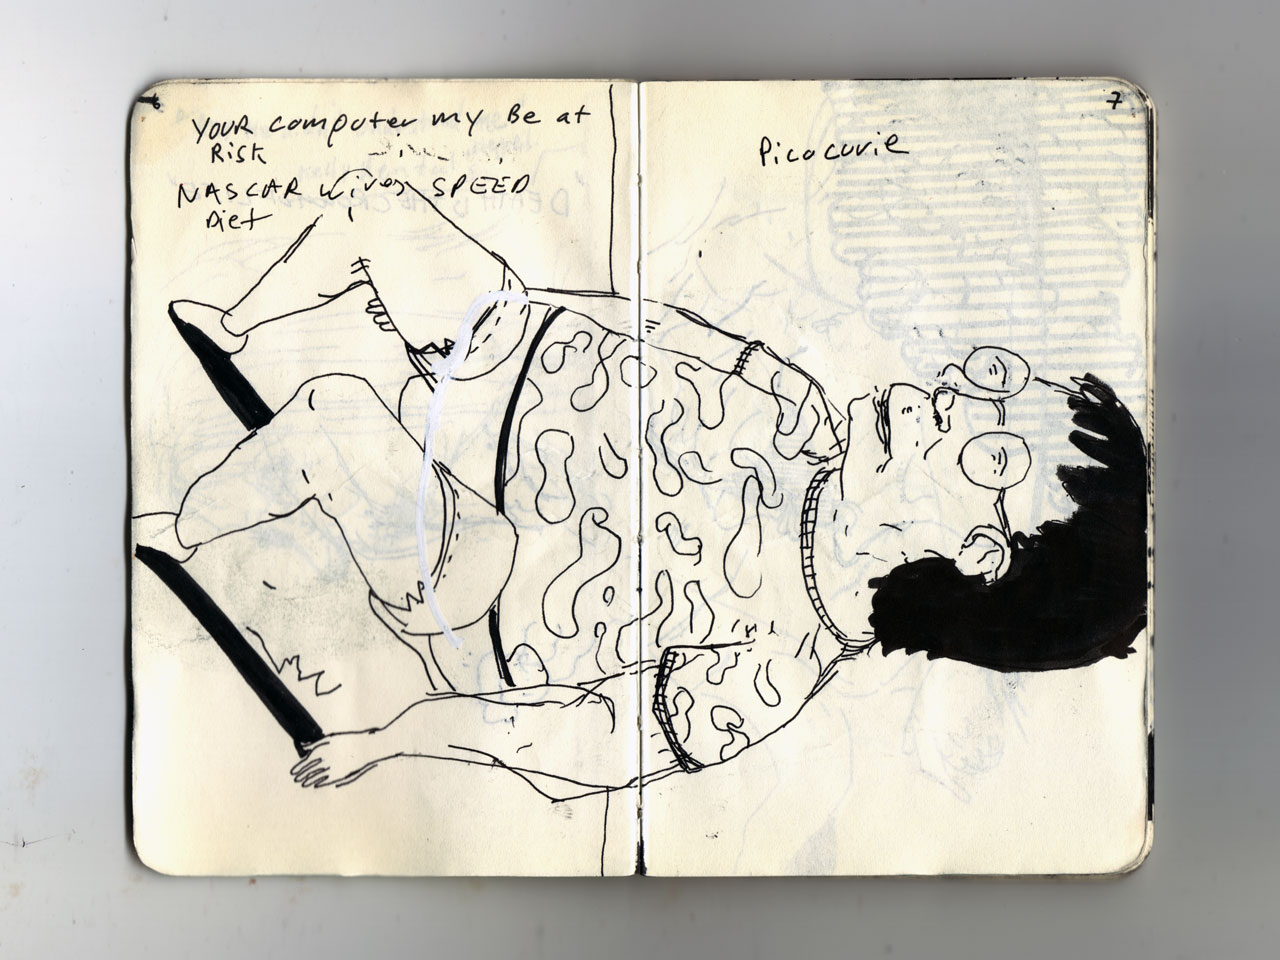 6
YOUR computer my Be at
Risk
NASCAR wives SPEED
Diet
7
Picocurie